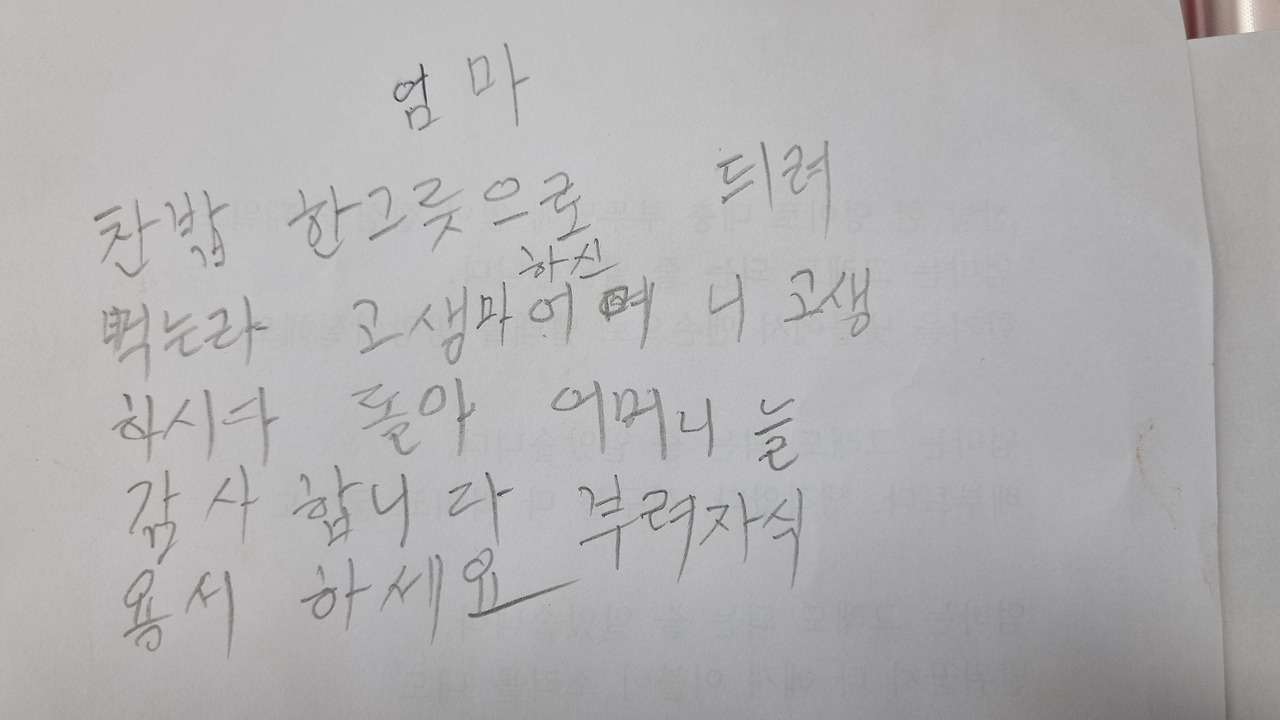 엄마
찬밥 한그릇으로 듸려
먹는라 고생마하신 어머니 고생
하시다 돌아 어머니 늘
감사 합니다 부려자식
용서 하세요